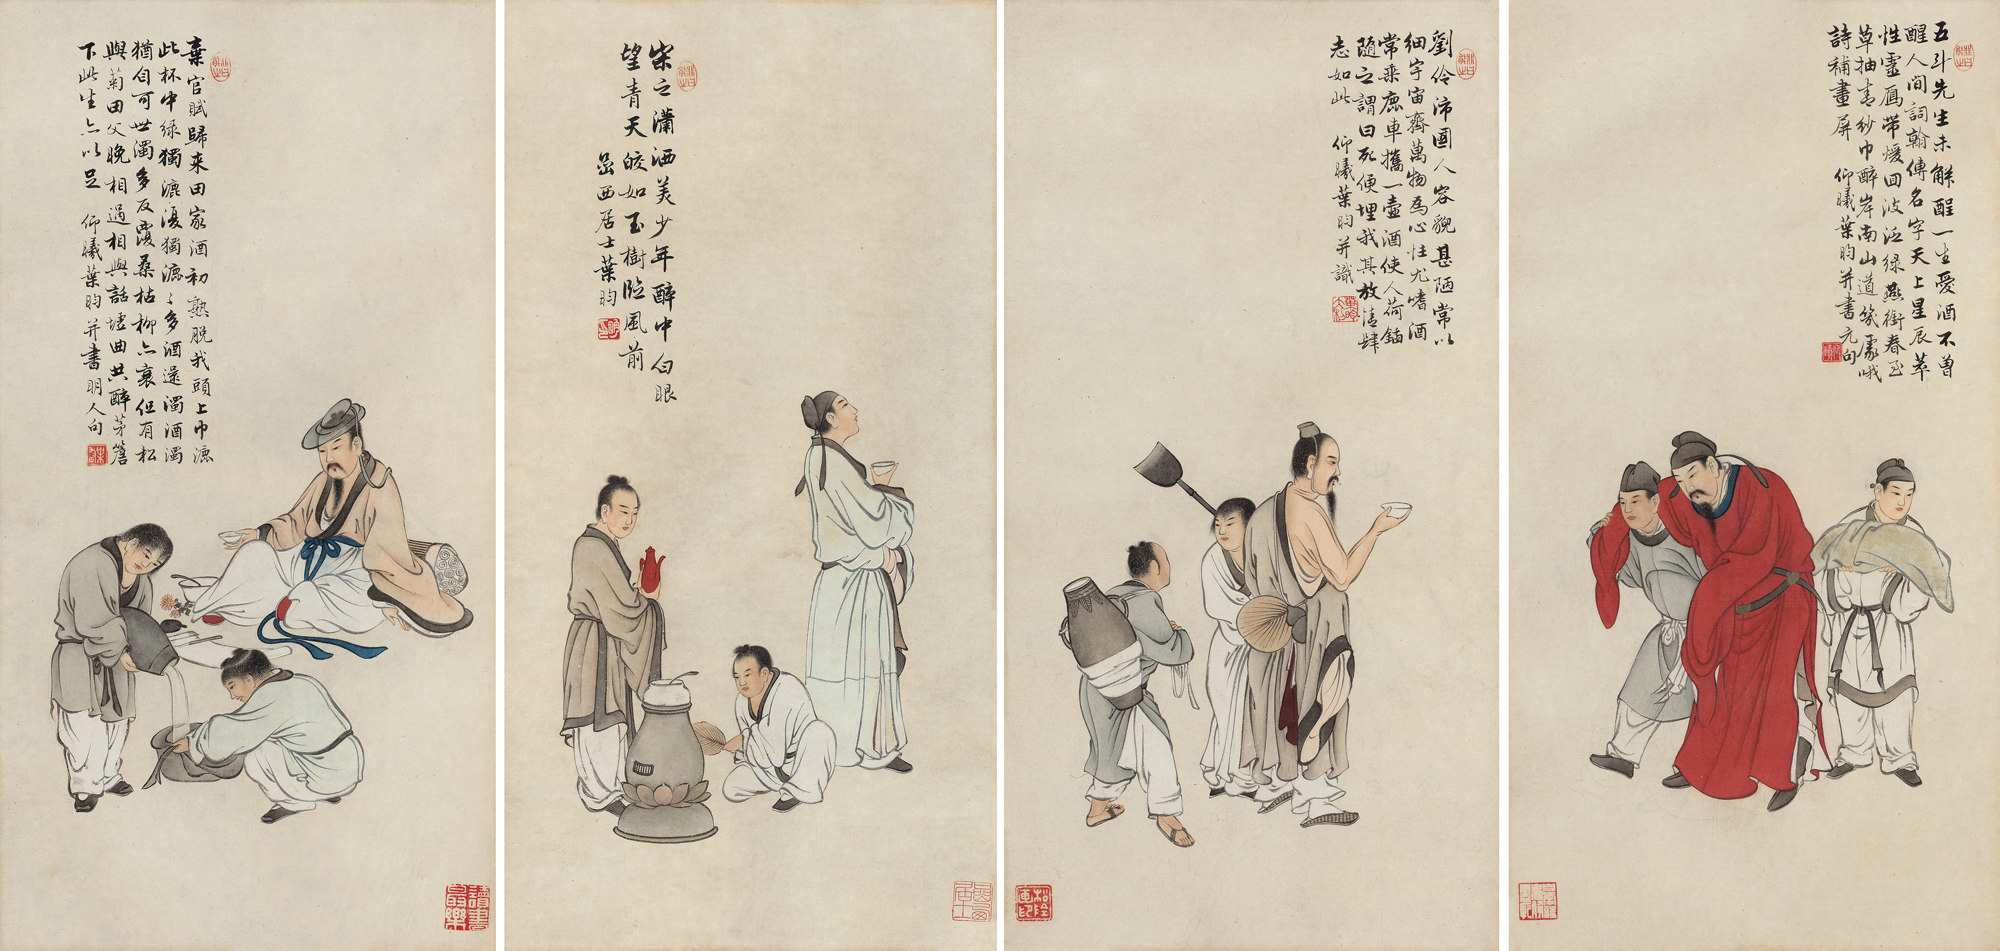 棄官賦歸来田家酒初熟脫我頭上巾漉
此杯中綠獨漉復獨漉〻多酒還濁酒濁
猶自可世濁多反覆桑枯柳亦衰但有松
與菊田父晚相過相與話墟曲共醉茅簷
下此生亦以足 仰曦葉昀并書明人句
讀書最樂
宗之瀟洒美少年醉中白眼
望青天皎如玉樹臨風前
嵒西居士葉昀
嵒西居士
劉伶沛國人容貌甚陋常以
細宇宙齊萬物為心性尤嗜酒
常乘鹿車攜一壺酒使人荷鍤
隨之謂曰死便埋我其放情肆
志如此 仰曦葉昀并識
五斗先生未解酲一生愛酒不曾
醒人間詞翰傳名字天上星辰萃
性靈雁帶煖回波泛綠燕銜春至
草抽青紗巾醉岸南山道幾處哦
詩補畫屏 仰曦葉昀并書元句